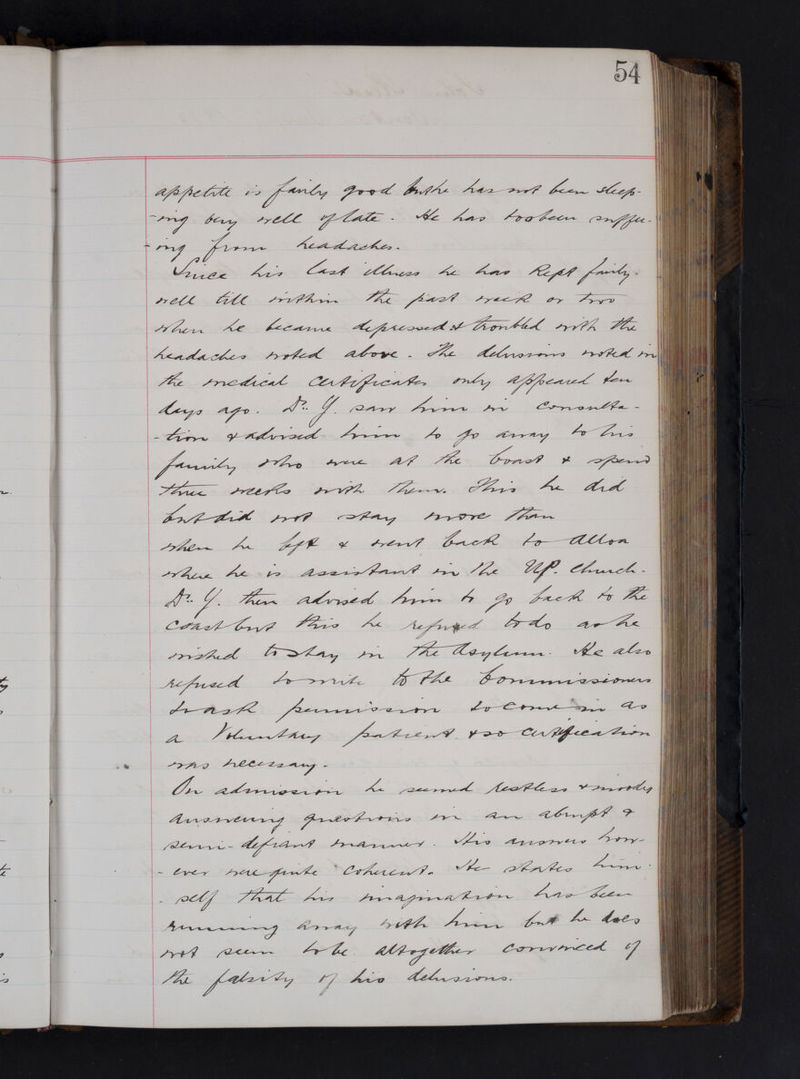 54
appetite is fairly good but he has not been sleep-
-ing very well of late. He has too been suffer-
-ing from headaches.
Since his last illness he has kept fairly
well till within the past week or two
when he became depressed & troubled with the
headaches noted above. The delusions noted in
the medical certificates only appeared ten
days ago. Dr. Y. saw him in consulta-
-tion & advised him to go away to his
family who were at the Coast & spend
three weeks with them. This he did
but did not stay more than
when he left & went back to Alloa
where he is assistant in the UP. Church.
Dr. Y. then advised him to go back to the
coast but this he refused to do as he
wished to stay in the Asylum. He also
refused to write to the Commissioners
to ask permission to come in as
a Voluntary patient & so certification
was necessary.
On admission he seemed restless & moody
answering questions in an abrupt &
semi-defiant manner. His answers how-
-ever were quite coherent. He states him-
-self that his imagination has been
running away with him but he does
not seem to be altogether convinced of
the falsity of his delusions.